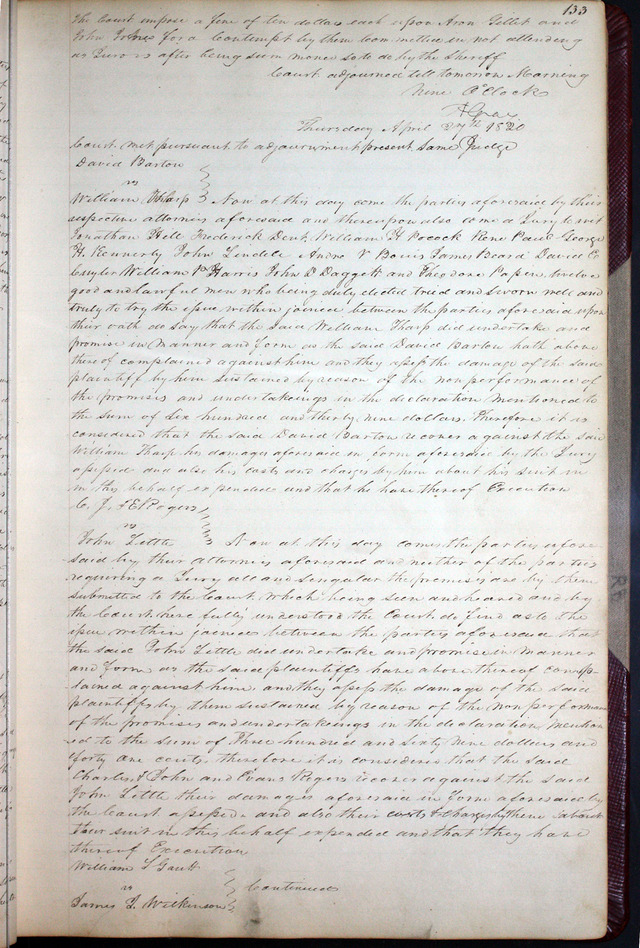 133
The Court impose a fine of ten dollars each upon Aron Gillet and
John Johns for a Contempt by them committed in not attending
as Jurors after being summoned so to do by the Sheriff
Court adjourned till tomorrow Morning
Nine O'Clock
Thursday April 27th 1820
Court met pursuant to adjournment present same Judge
David Barton
vs
William Tharp Now at this day come the parties aforesaid by their
respective attornies aforesaid and thereupon also come a Jury to wit
Jonathan Hill Frederick Dent William H Pocock Rene Paul George
H. Kennerly John Lindell Andre V Bouis James Beard David C
William Harris John D Daggett and Theodore Papen twelve
good and lawful men who being duly elected tried and sworn well and
truly to try the issue within joined between the parties aforesaid upon
their oath do say that the said William Tharp did undertake and
promise in Manner and form as the said David Barton hath above
thereof complained against him and they assess the damage of the said
plaintiff by him sustained by reason of the non performance of
the promises and undertakings in the declaration mentioned to
the sum of Six hundred and thirty nine dollars. therefore it is
considered that the said David Barton recover against the said
William Tharp his damages aforesaid in form aforesaid by the Jury
assessed and also his costs and charges by him about his suit in
in this behalf expended and that he have thereof Execution
C. J. & E Rogers
vs
John Little Now at this day comes the parties afore-
said by their attornies aforesaid and neither of the parties
requiring a Jury all and singular the premises are by them
submitted to the Court which being seen and heard and by
the Court here fully understood the Court do find as to the
issue within joined between the parties aforesaid that
the said John Little did undertake and promise in Manner
and form as the said plaintiffs have above thereof comp-
lained against him and they assess the damage of the said
plaintiffs by them sustained by reason of the non performance
of the promises and undertakings in the declaration mention
ed to the sum of Three hundred and Sixty Nine dollars and
forty one cents, therefore it is considered that the said
Charles, John and Evans Rogers recover against the said
John Little their damages aforesaid in form aforesaid by
the Court assessed and also their costs & charges by them about
their suit in this behalf expended and that they have
thereof Execution
William S Gantt
vs Continued
James J. Wilkinson